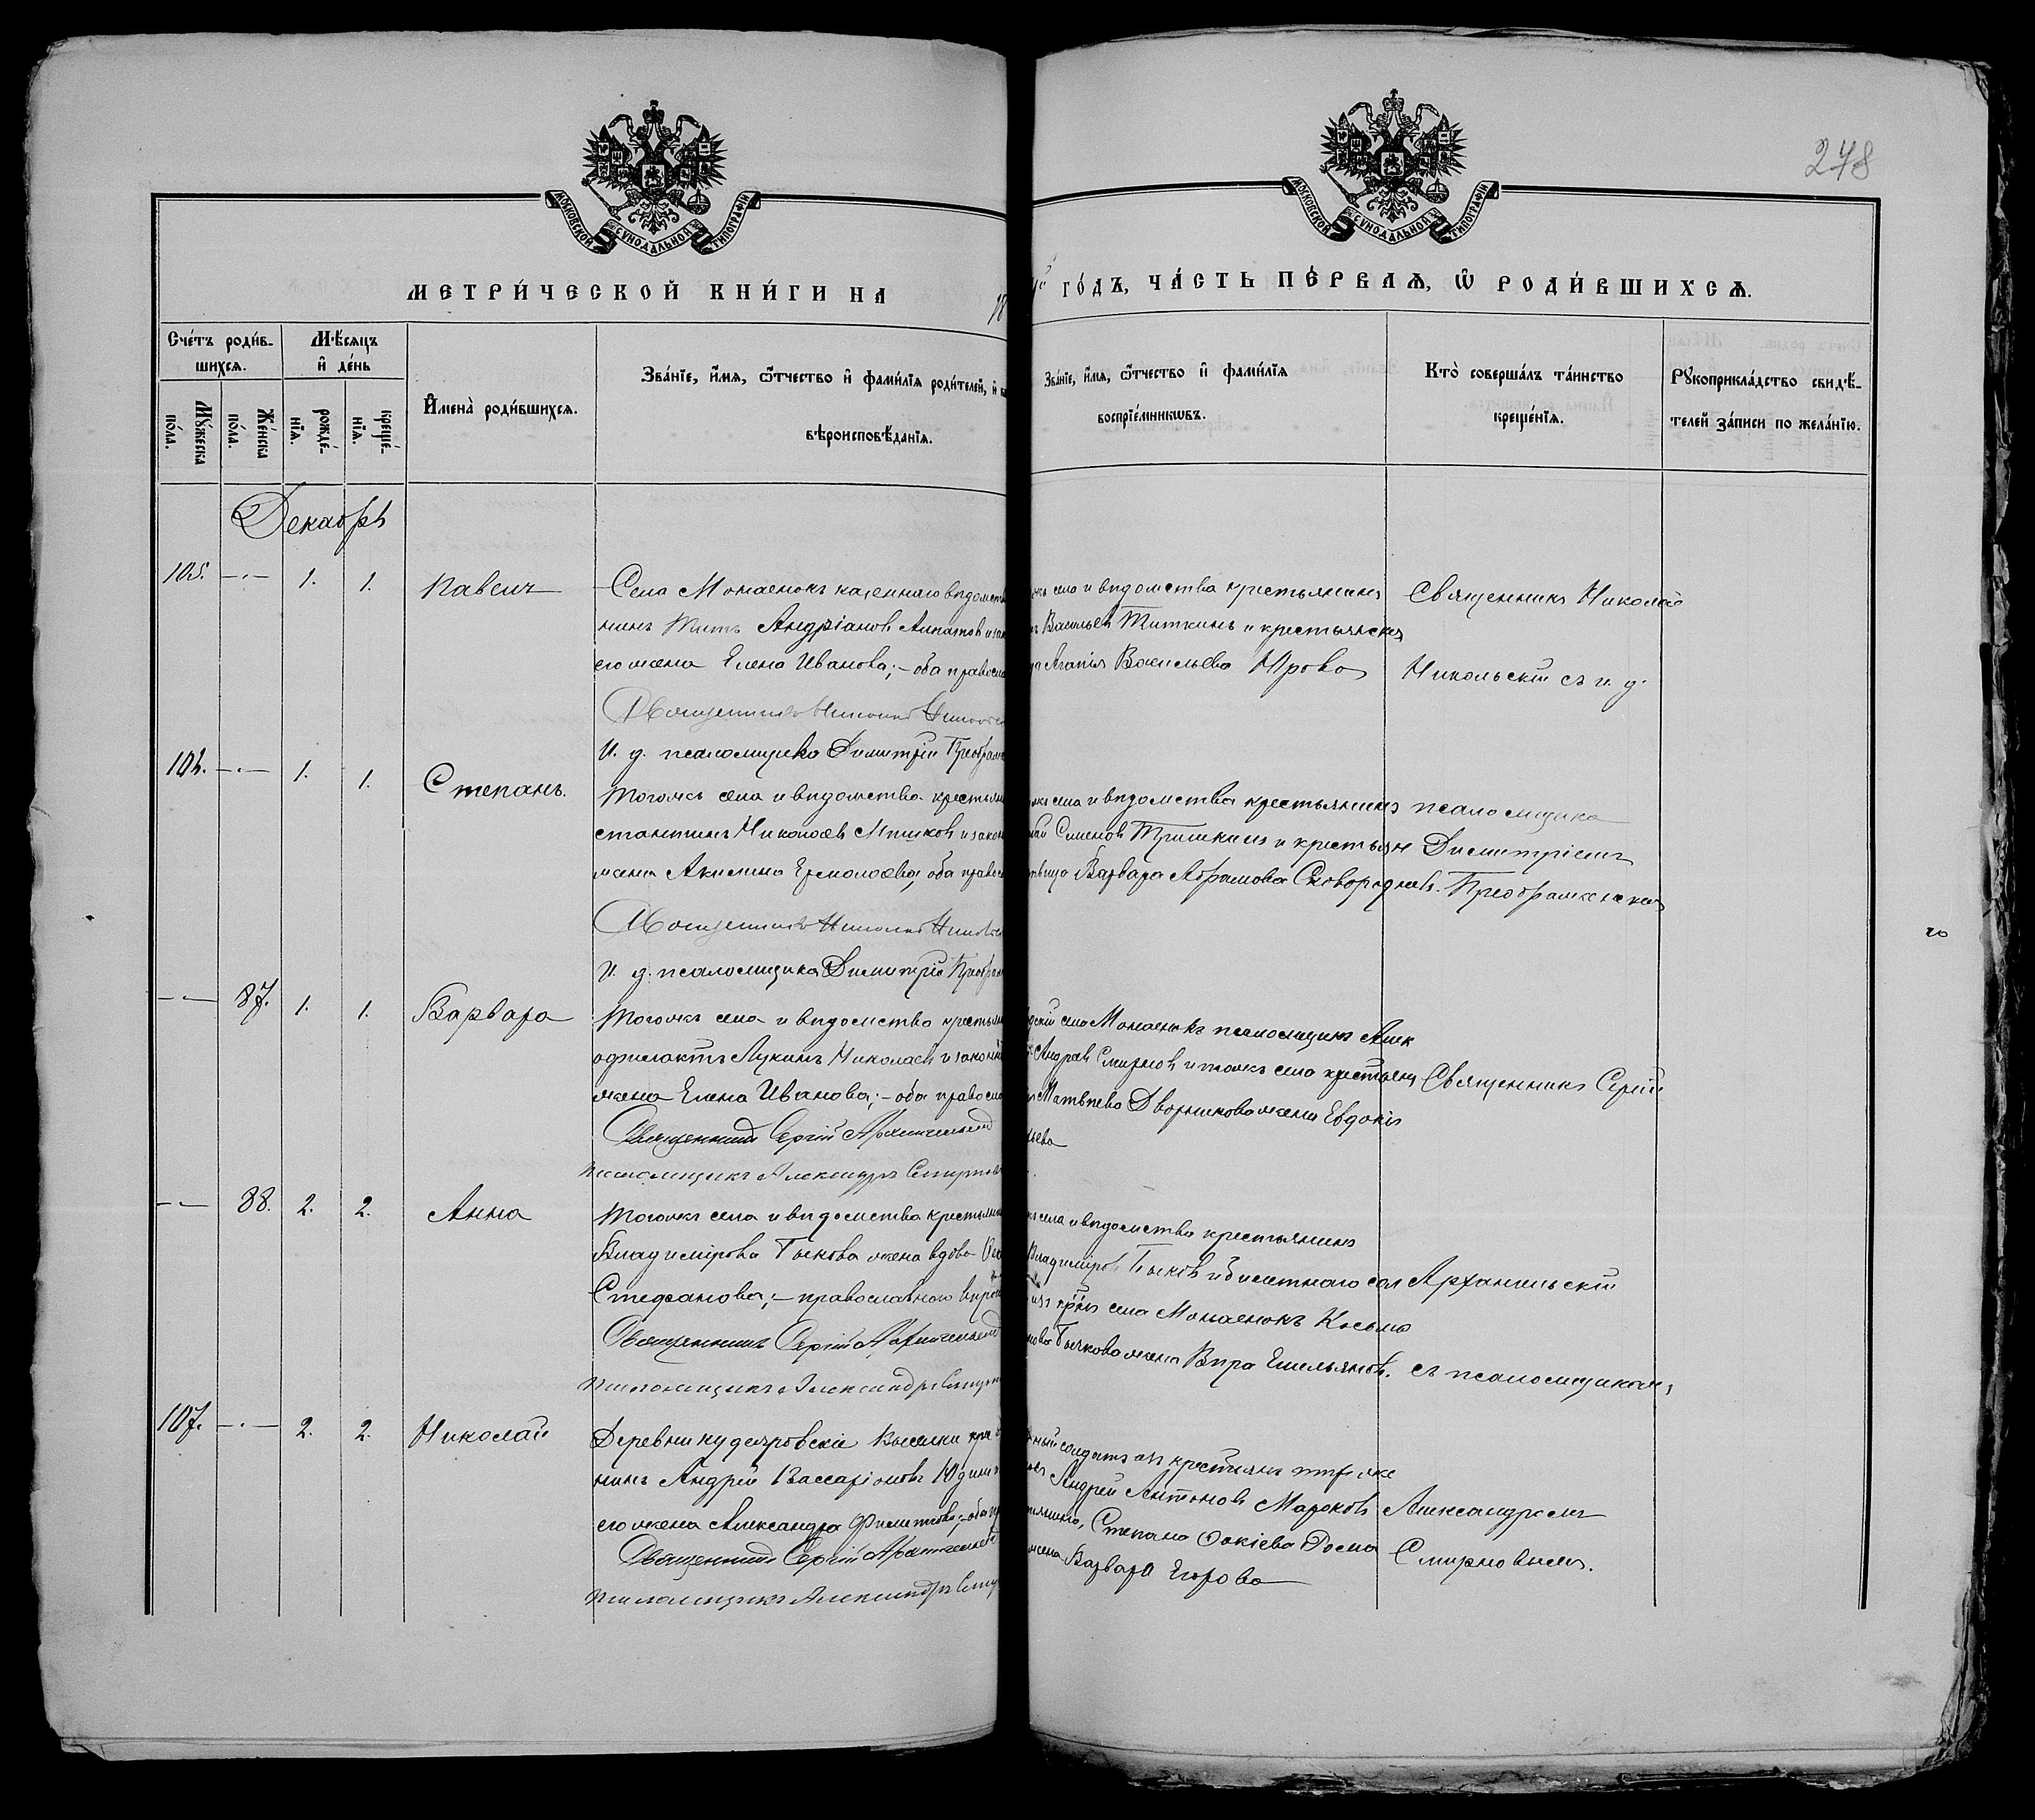 278
МОСКОВСКОЙ СѴНОДАЛЬНОЙ ТИПОГРАФІИ
МОСКОВСКОЙ СѴНОДАЛЬНОЙ ТИПОГРАФІИ
МЕТРИ́ЧЕСКОЙ КНИ́ГИ НА 18
ГО́ДЪ, ЧА́СТЬ ПЕ́РВАѦ, Ѿ РОДИ́ВШИХСѦ.
Сче́тъ роди́в-
шихсѧ.
Мѣ́сѧцъ
и҆ де́нь
Мꙋ́жеска
по́ла.
Же́нска
по́ла.
рожде́-
нїѧ.
креще́-
нїѧ.
И҆мена̀ роди́вшихсѧ.
Зва́нїе, и҆́мѧ, ѻ҆́тчество и҆ фами́лїѧ роди́телей, и҆
вѣроисповѣ́данїѧ.
Зва́нїе, и҆́мѧ, ѻ҆́тчество и҆ фами́лїѧ
воспрїе́мникѡвъ.
Кто̀ соверша́лъ та́инство
креще́нїѧ.
Рꙋкоприкла́дство свидѣ́-
телей за́писи по жела́нїю.
Декабрь
105. 1. 1. Павелъ
Села Монаенокъ казеннаго вѣдомств
нинъ Титъ Андріановъ Алпатов и зак
его жена Елена Иванова; – оба правосл
Священникъ Николай Никольск
И. д. псаломщика Димитрій Преображ
села и вѣдомства крестьянинъ
Васильевъ Титкинъ и крестьянская
Агапія Васильева Юрова
Священникъ Николай
Никольскій съ и. д.
106. 1. 1. Степанъ.
Тогожъ села и вѣдомства крестьян
стантинъ Николаевъ и закон
жена Акилина Ермолаева; оба правос
Священникъ Николай Никольс
И. д. псаломщика Димитрій Преображ
села и вѣдомства крестьянинъ
Семеновъ Тришкинъ и крестьян
Варвара Абрамова Сковороднев.
псаломщика
Димитріемъ
Преображенскимъ
87. 1. 1. Варвара
Тогожъ села и вѣдомства крестьян
офилактъ Лукинъ Николаев и законн
жена Елена Иванова; – оба правосла
Священникъ Сергій Архангельскій
псаломщикъ Александръ Смирнов
село Монаенокъ псаломщикъ Алек
Андрев Смирнов и тожъ села крестьян
Матвѣева Дворникова жена Евдокія
ьева
Священникъ Сергій
88. 2. 2. Анна
Тогожъ села и вѣдомства крестьян
Владимірова Быкова жена вдова
Стефанова; – православного вѣро
Священникъ Сергій Архангельскій
псаломщикъ Александръ Смирн
села и вѣдомства крестьянинъ
Владиміровъ Быков и билетнаго сол
изъ крѣн села Монаенокъ Косьма
Бычкова жена Вѣра Емельянов.
Архангельскій
съ псаломщикомъ
107. 2. 2. Николай
Деревни Кудеяровскіе Выселки кре
нинъ Андрей Вассаріоновъ Юдин
его жена Александра Филиппова; – оба пр
Священникъ Сергій Архангельскій
псаломщикъ Александръ Смир
солдатъ изъ крестьянъ
Андрей Антонов Мароков
Степана
жена Варвара Егорова
Александромъ
Смирновымъ.